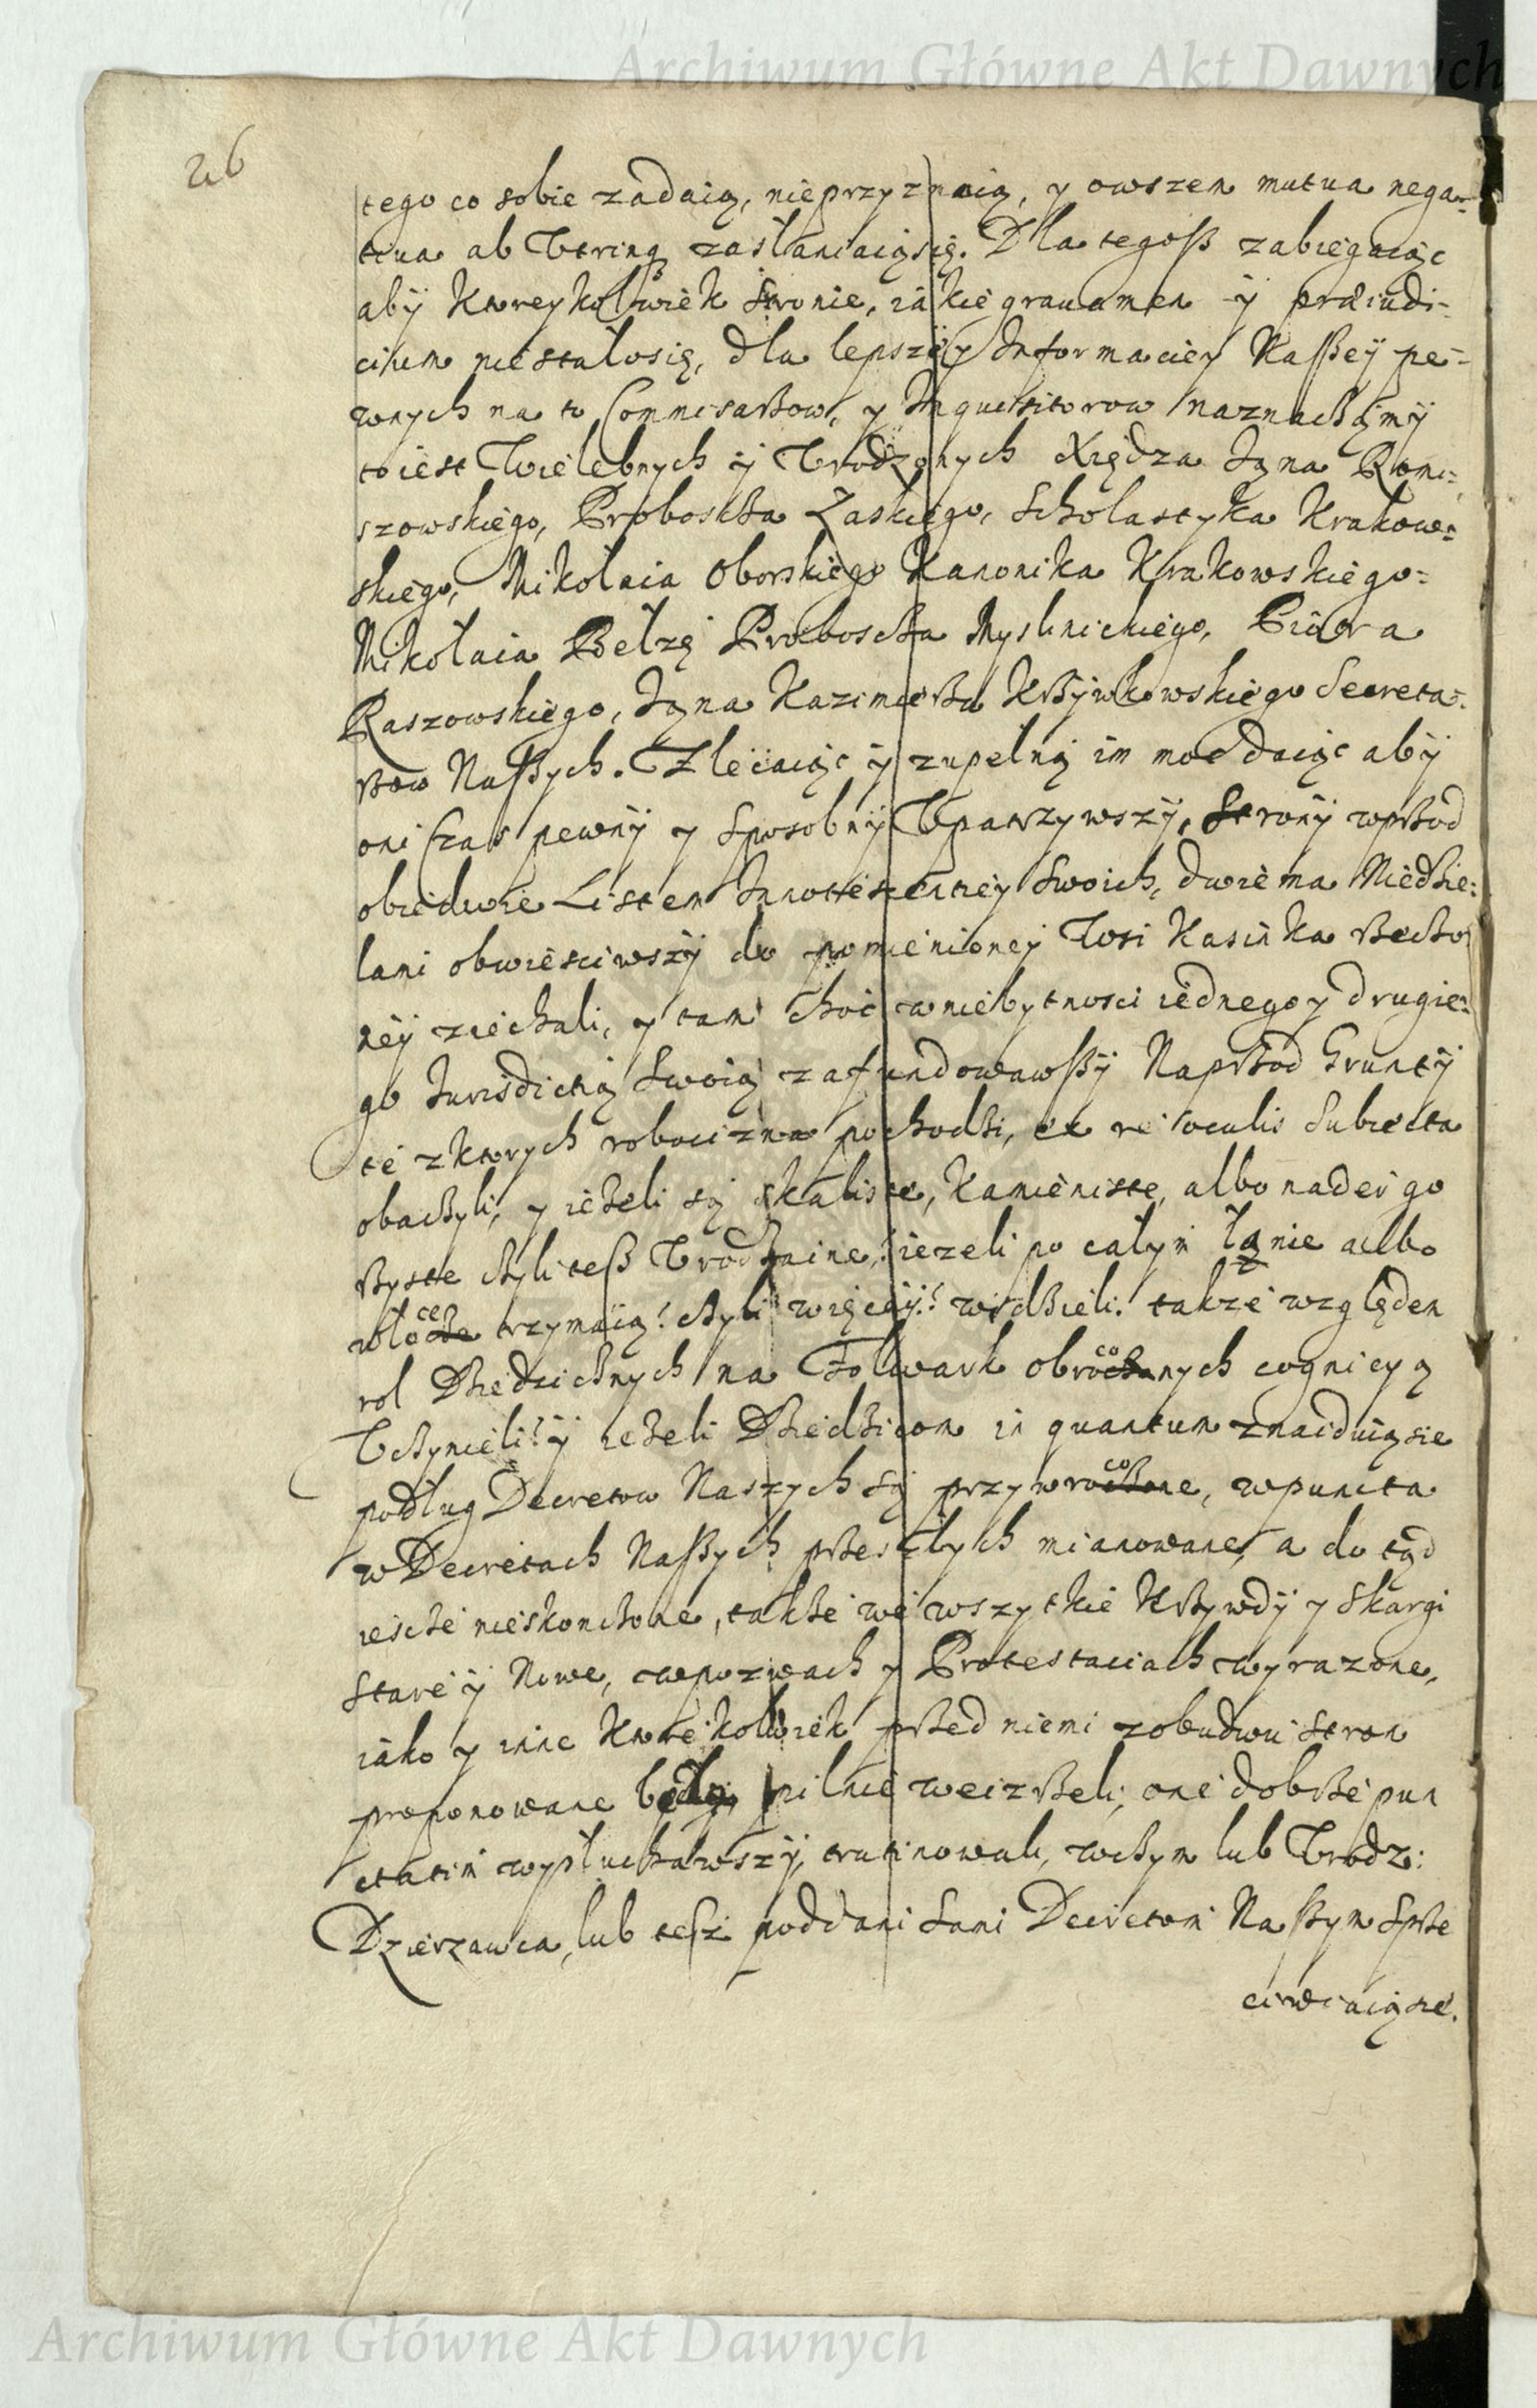 Archiwum Główne Akt Dawnych
26
tego co sobie zadaią, nieprzyznaią, y owszem mutua nega-
tiua ab Vtrinq zasłaniaiąsię. Dla tegoß zabiegaiąc
abÿ Ktoreykolwiek stronie, iakie grauamen ÿ præiudi-
cium niestałosię, dla lepszey Informaciey Naßeÿ pe-
wnych na to Commisarßow, y Inquisitorow naznaczamÿ
toiest Wielebnych ÿ Vrodzonych Xiędza Iana Romi-
szowskiego, Proboscza Łaskiego, Scholastyka Krakow-
skiego, Mikołaia Oborskiego Kanonika Krakowskiego
Mikołaia Bełzę Proboscza Myslinickiego, Piotra
Raszowskiego, Iana Kazimierßa Krßÿwkowskiego Secreta-
rßow Naßych. Zlecaiąc ÿ zupelną im moc daiąc abÿ
oni Czas pewnÿ y sposobnÿ Vpatrzywszÿ, Stronÿ wprßod
obiedwie Listem Innotescentiey swoich, dwiema Niedzie-
lami obwiesciwszÿ do pomienioneÿ Wsi Kasinka rßeczo
neÿ ziechali, y tam choc w niebytnosci iednego y drugie-
go Iurisdictią swoią zafundowawßÿ Naprßod Gruntÿ
te z ktorych robocizna pochodzi, ex re oculis subiecta
obaczyli, y ieżeli są skaliste, kamieniste, albo nader go
rßyste czyli teß Vrodzaine, ieżeli po całym łanie albo
włoce trzymaią? czyli więceÿ? widzieli. takze względem
rol Dziedzicznych na Folwark obroconych cognicyą
Vczynieli? ÿ ieżeli Dziedzicom in quantum znaiduiąsie
podług Decretow Naszych są przywrocone, w puncta
w Decretach Naßych prßeszłych mianowane, a do tąd
iescze nieskonczone, takze we wszytkie Krßywdÿ y skargi
stare ÿ Nowe, w pozwach y Protestaciach wyrazone,
iako y inne Ktorekolwiek prßed niemi z obudwu stron
proponowane będą, pilnie weizrßeli, one dobrße pun
ctatim wysłuchawszÿ, trutinowali, w czym lub Vrodz:
Dzierzawca, lub teß poddani sami Decretom Naßym sprße
ciwiaiąsie.
Archiwum Główne Akt Dawnych